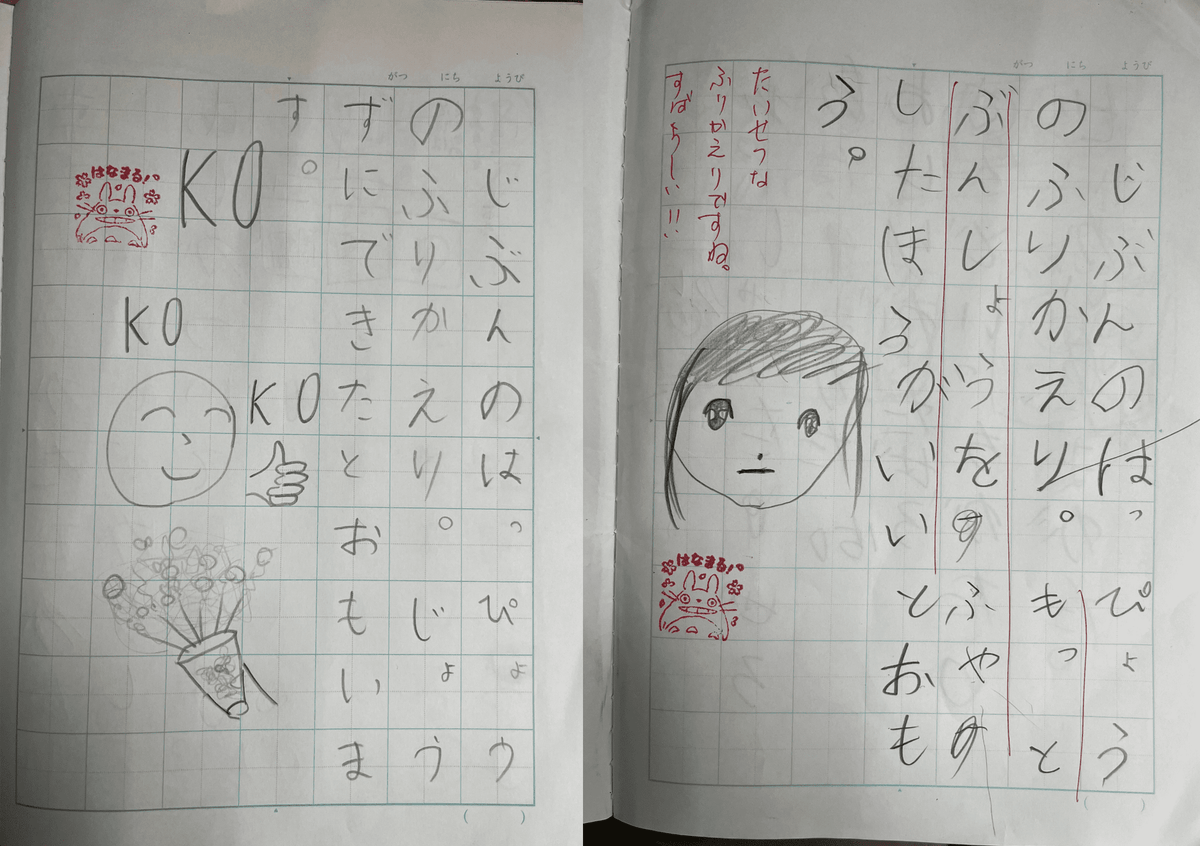 がつ にち ようび
じぶんのはっぴょう
のふりかえり。じょう
ずにできたとおもいま
す。
KO
KO
KO
はなまる!
がつ にち ようび
じぶんのはっぴょう
のふりかえり。もっと
ぶんしょうをふや
したほうがいいとおも
う。
たいせつな
ふりかえりですね。
すばらしい!!
はなまる!